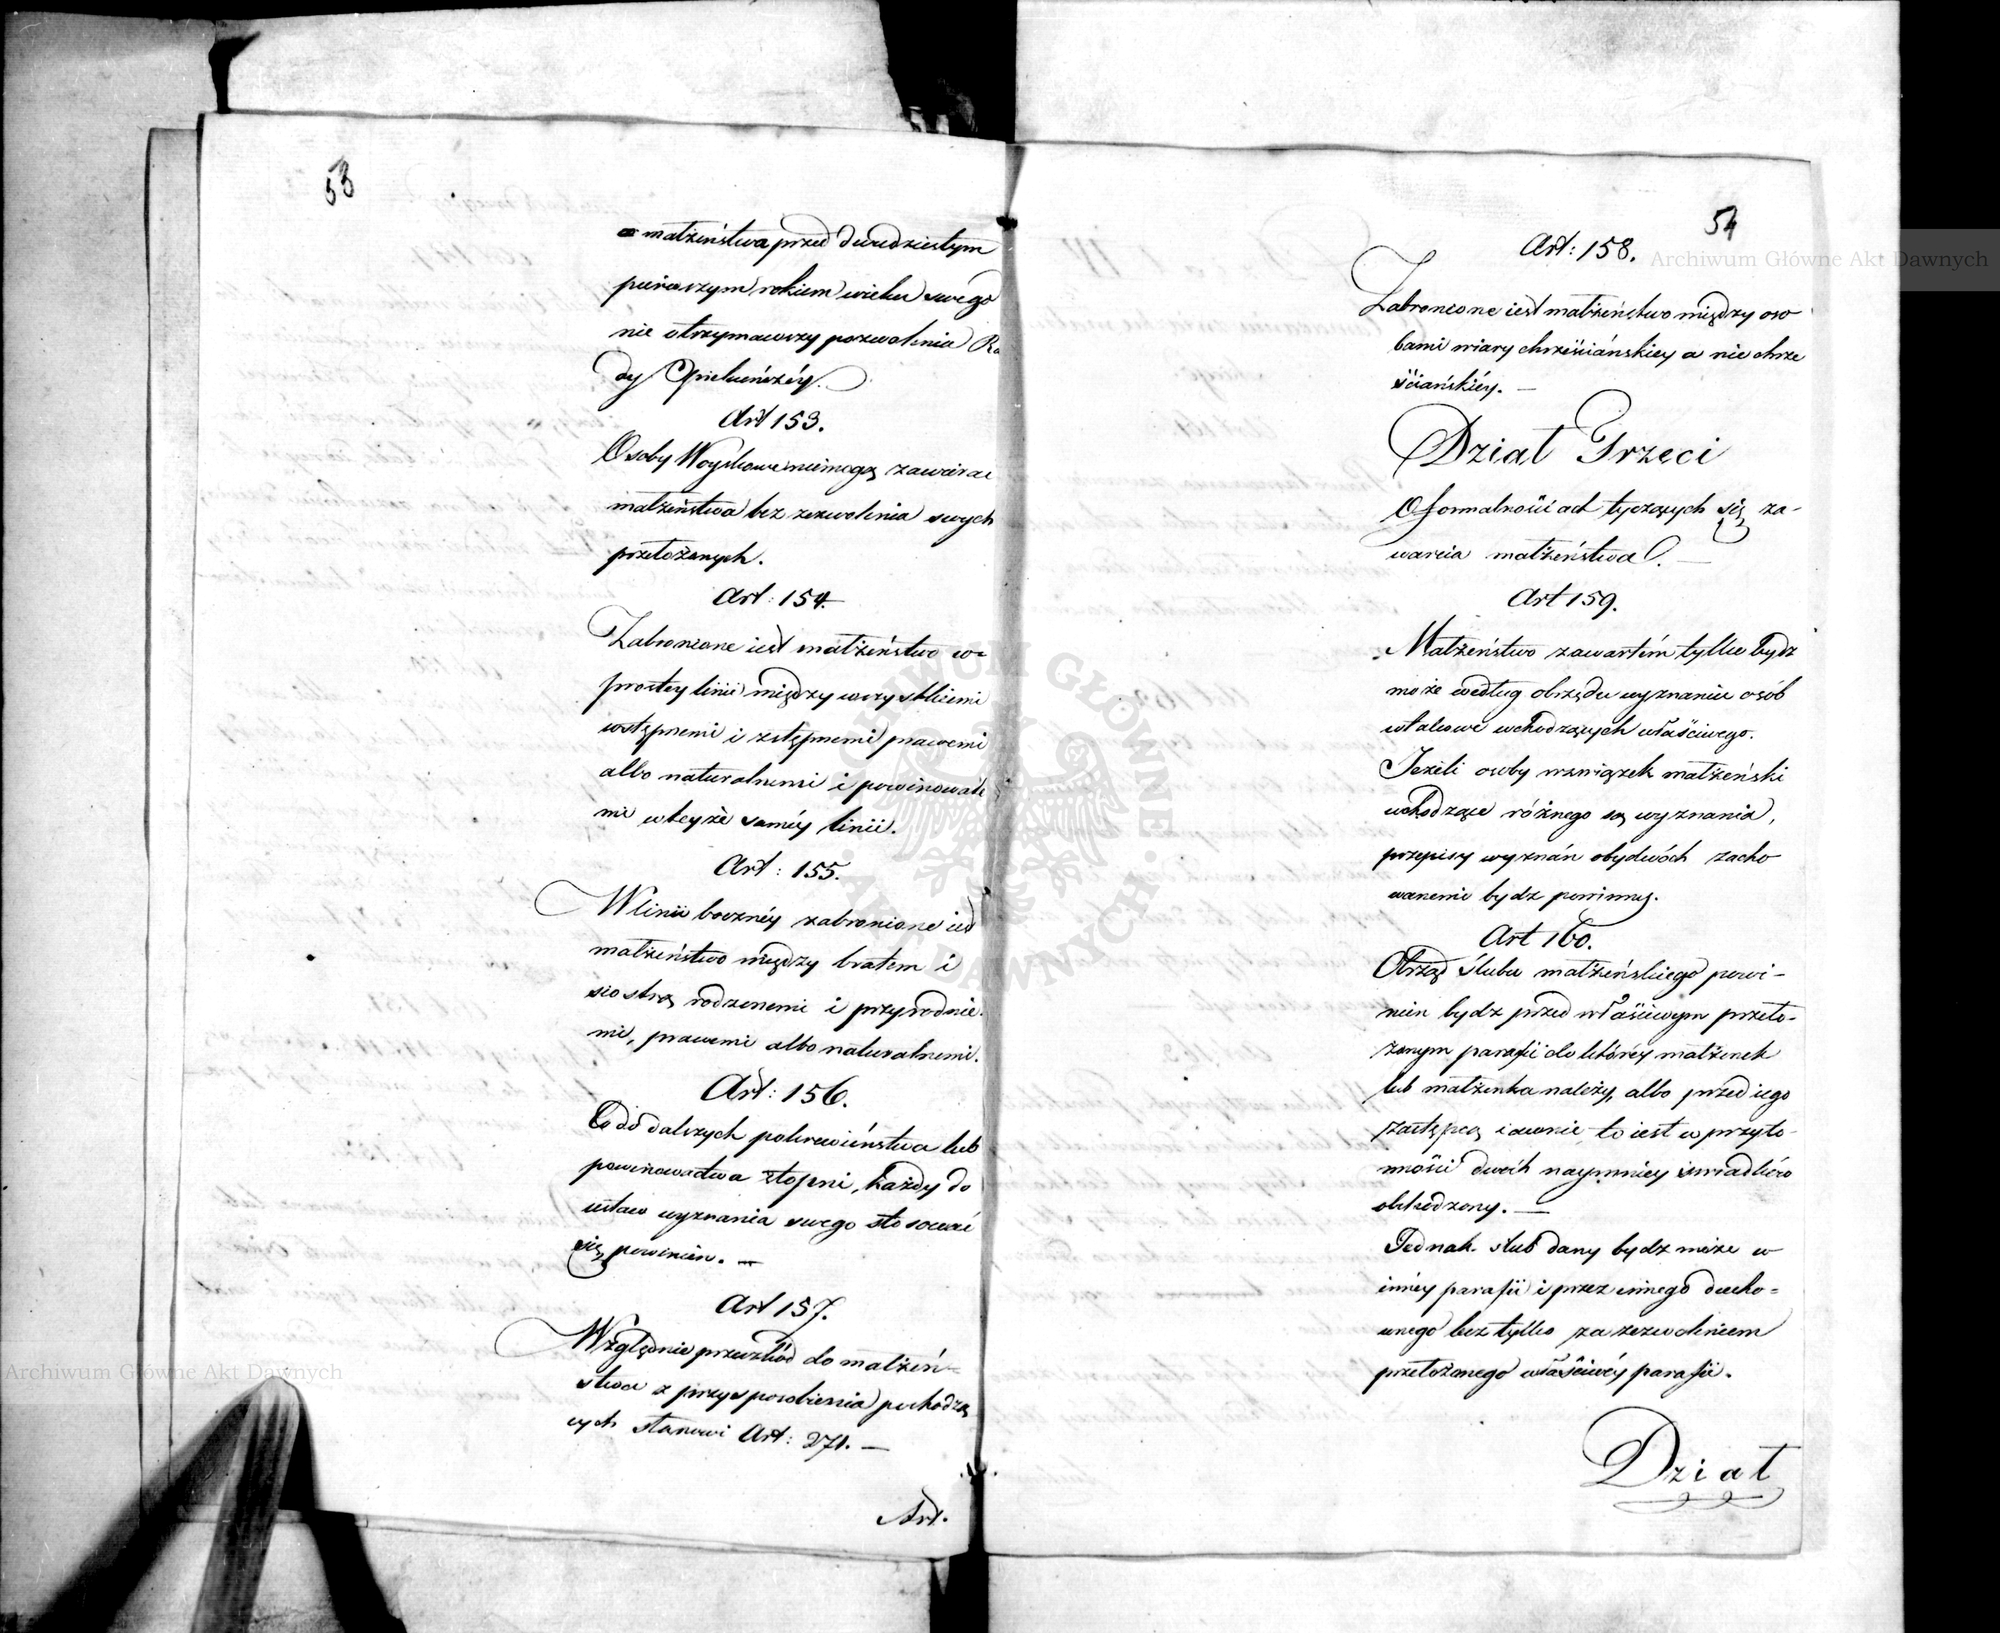 53
małżeństwa przed dwudziestym
pierwszym rokiem wieku swego
nie otrzymawszy pozwolenia Ra
dy Opiekuńczéy.
Art 153.
Osoby Woyskowe niemogą zawierac
małżeństwa bez zezwolenia swych
przełożonych.
Art: 154.
Zabronione iest małżeństwo w
prostey linii między wszystkiemi
wstępnemi i zstępnemi prawemi
albo naturalnemi i powinowate
mi w teyże saméy linii.
Art: 155.
W linii bocznéy zabronione iest
małżeństwo między bratem i
siostrą rodzonemi i przyrodnie
mi, prawemi albo naturalnemi.
Art: 156.
Co do dalszych pokrewieństwa lub
powinowadtwa stopni, każdy do
ustaw wyznania swego stosować
się powinien. —
Art 157.
Względnie przeszkód do małżeń-
stwa z przysposobienia pochodzą
cych stanowi Art: 271. —
Art.
54
Art: 158.
Zabronione iest małżeństwo między oso
bami wiary chrześciańskiey a nie chrze
ściańskiéy. —
Dział Trzeci
O formalnościach tyczących się za-
warcia małżeństwa. —
Art 159.
Małżeństwo zawartém tylko bydz
może według obrzędu wyznaniu osób
w takowe wchodzących właściwego.
Jeżeli osoby w związek małżeński
wchodzące różnego są wyznania,
przepisy wyznán obydwóch zacho
wanemi bydz powinny.
Art 160.
Obrząd ślubu małżeńskiego powi-
nien bydz przed właściwym przeło-
żonym parafii do któréy małżonek
lub małżonka należy, albo przed iego
zastępcą i awnie to iest w przyto-
mności dwóch naymniey swiadków
obchodzony. —
Jednak ślub dany bydz może w
innéy parafii i przez innego ducho-
wnego bez tylko za zezwoleniem
przełożonego właściwéy parafii.
Dział
Archiwum Główne Akt Dawnych
Archiwum Główne Akt Dawnych
ARCHIWUM GŁÓWNE AKT DAWNYCH